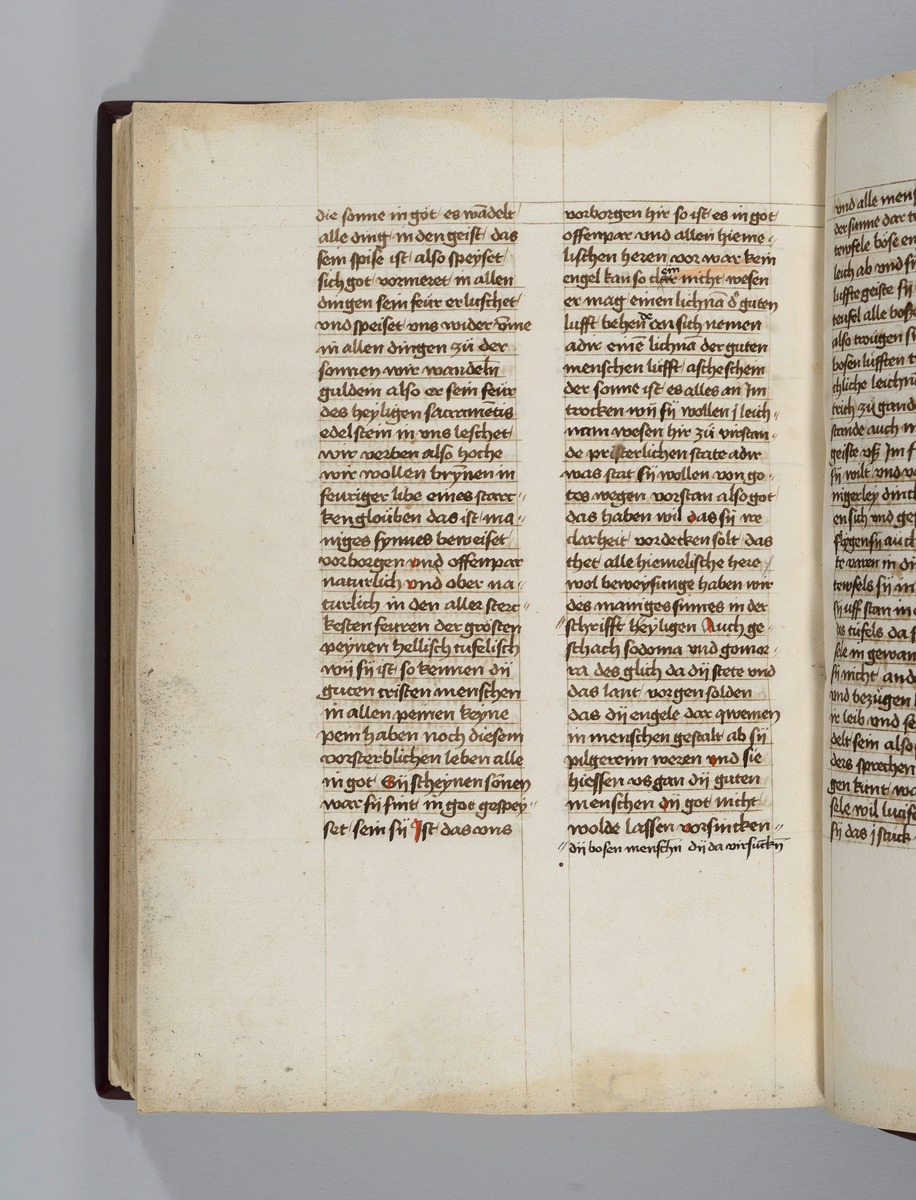 die sonne in got es wādelt
alle ding in den geist das
sein spise ist also speyset
sich got vormeret in allen
dingen sein feür erluschet
vnd speiset vns wider v̄me
in allen dingen zü der
sonnen wir wandeln
guldein also er sein feür
des heyligen sacramētis
edelstein in vns leschet
wir verben also hoche
wir wollen brynen in
feuriger libe eines starc〃
ken gloüben das ist ma〃
niges synnes beweiset
vorborgen vnd offenpar
naturlich vnd ober na〃
türlich in den aller sterc〃
kesten feüren der grosten
peynen hellisch tufelisch
wij sij ist so kennen dij
guten cristen menschen
in allen peinen keyne
pein haben noch diesem
vorsterblichen leben alle
in got Sij scheynen sōnen
war sij sint in got gespey〃
set sein sij Ist das vns
vorborgen hir so ist es in got
offenpar vnd allen hieme〃
lischen heren vor war kein
engel kan so nicht wesen
er mag einen lichnā d' guten
lufft an sich nemen
adir einē lichnā der guten
menschen lüfft asche schein
der sonne ist es alles an Im
trocken wij sij wollen j leich〃
nam wesen hir zü virstan〃
de pristerlichen state adir
was stat sij wollen von go〃
tes wegen vorstan also got
das haben wil das sij ire
clarheit vordecken solt das
thet alle hiemelische here
wol beweysunge haben wir
des maniges sinnes in der
〃schrifft heyligen Auch ge〃
schach sodoma vnd gomor〃
ra des glich da dij stete vnd
das lant vorgen solden
das dij engele dar qwemen
in menschen gestalt ab sij
pilgerenn weren vnd sie
hiessen vs gan dij guten
menschen dij got nicht
wolde lassen vorsincken〃
〃dij bosen menschn dij da virsuckn
vnd alle mens
der sunne dar
teufele böse
leich ab vnd
luffte geiste sij
teufel alle
also
bosen lüfften
leichn
zü
stande auch
geiste
sij wilt vnd
nigerley dinck
en sich vnd
sij auch
waren in
teufels sij
sij uff stan in
des tüfels da
sele in gewan
sij nicht and
vnd bezügen
ir leib vnd se
sein also
sprechen
gen kunt
sele wil lucif
sij das j stuck